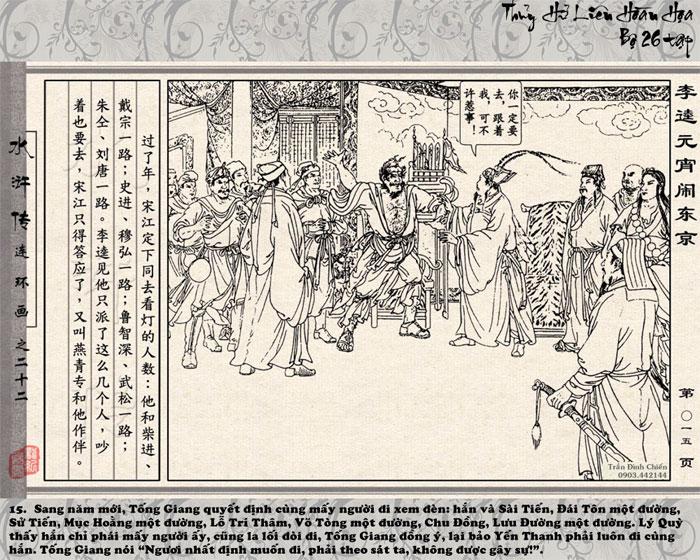 Thủy Hử Liên Hoàn Họa
Bộ 26 tập
李逵元宵闹东京
第〇一五页
你一定要
去，跟着
我，可不
许惹事！
过了年，宋江定下同去看灯的人数：他和柴进、
戴宗一路；史进、穆弘一路；鲁智深、武松一路；
朱仝、刘唐一路。李逵见他只派了这么几个人，吵
着也要去，宋江只得答应了，又叫燕青专和他作伴。
水浒传连环画之二十二
Trần Đình Chiến
0903.442144
15. Sang năm mới, Tống Giang quyết định cùng mấy người đi xem đèn: hắn và Sài Tiến, Đái Tôn một đường,
Sử Tiến, Mục Hoằng một đường, Lỗ Trí Thâm, Võ Tòng một đường, Chu Đồng, Lưu Đường một đường. Lý Quỳ
thấy hắn chỉ phái mấy người ấy, cũng la lối đòi đi, Tống Giang đồng ý, lại bảo Yến Thanh phải luôn đi cùng
hắn. Tống Giang nói “Ngươi nhất định muốn đi, phải theo sát ta, không được gây sự!”